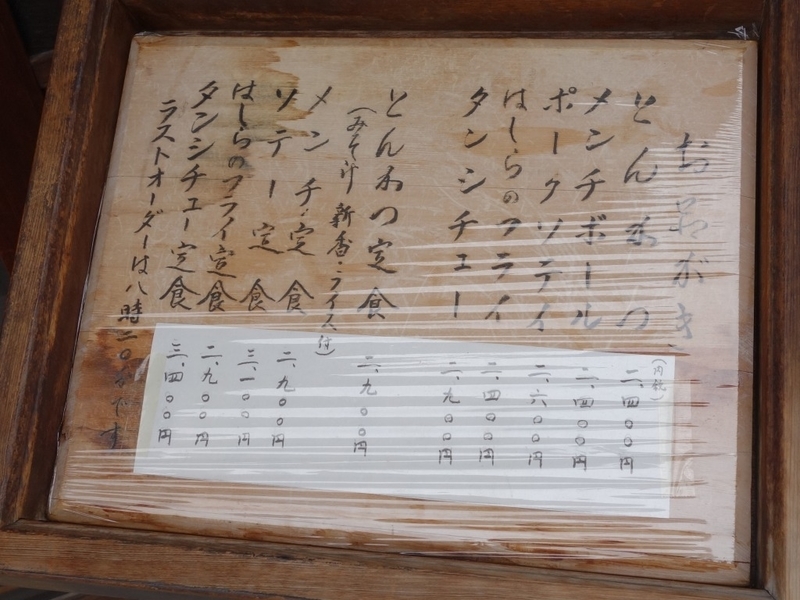 お品がき
(内税)
とんかつ 二、四〇〇円
メンチボール 二、四〇〇円
ポークソテイ 二、六〇〇円
はしらのフライ 二、四〇〇円
タンシチュー 二、九〇〇円
とんかつ定食 二、九〇〇円
(みそ汁 新香・ライス付)
メンチ定食 二、九〇〇円
ソテー定食 三、一〇〇円
はしらのフライ定食 二、九〇〇円
タンシチュー定食 三、四〇〇円
ラストオーダーは八時二〇分です